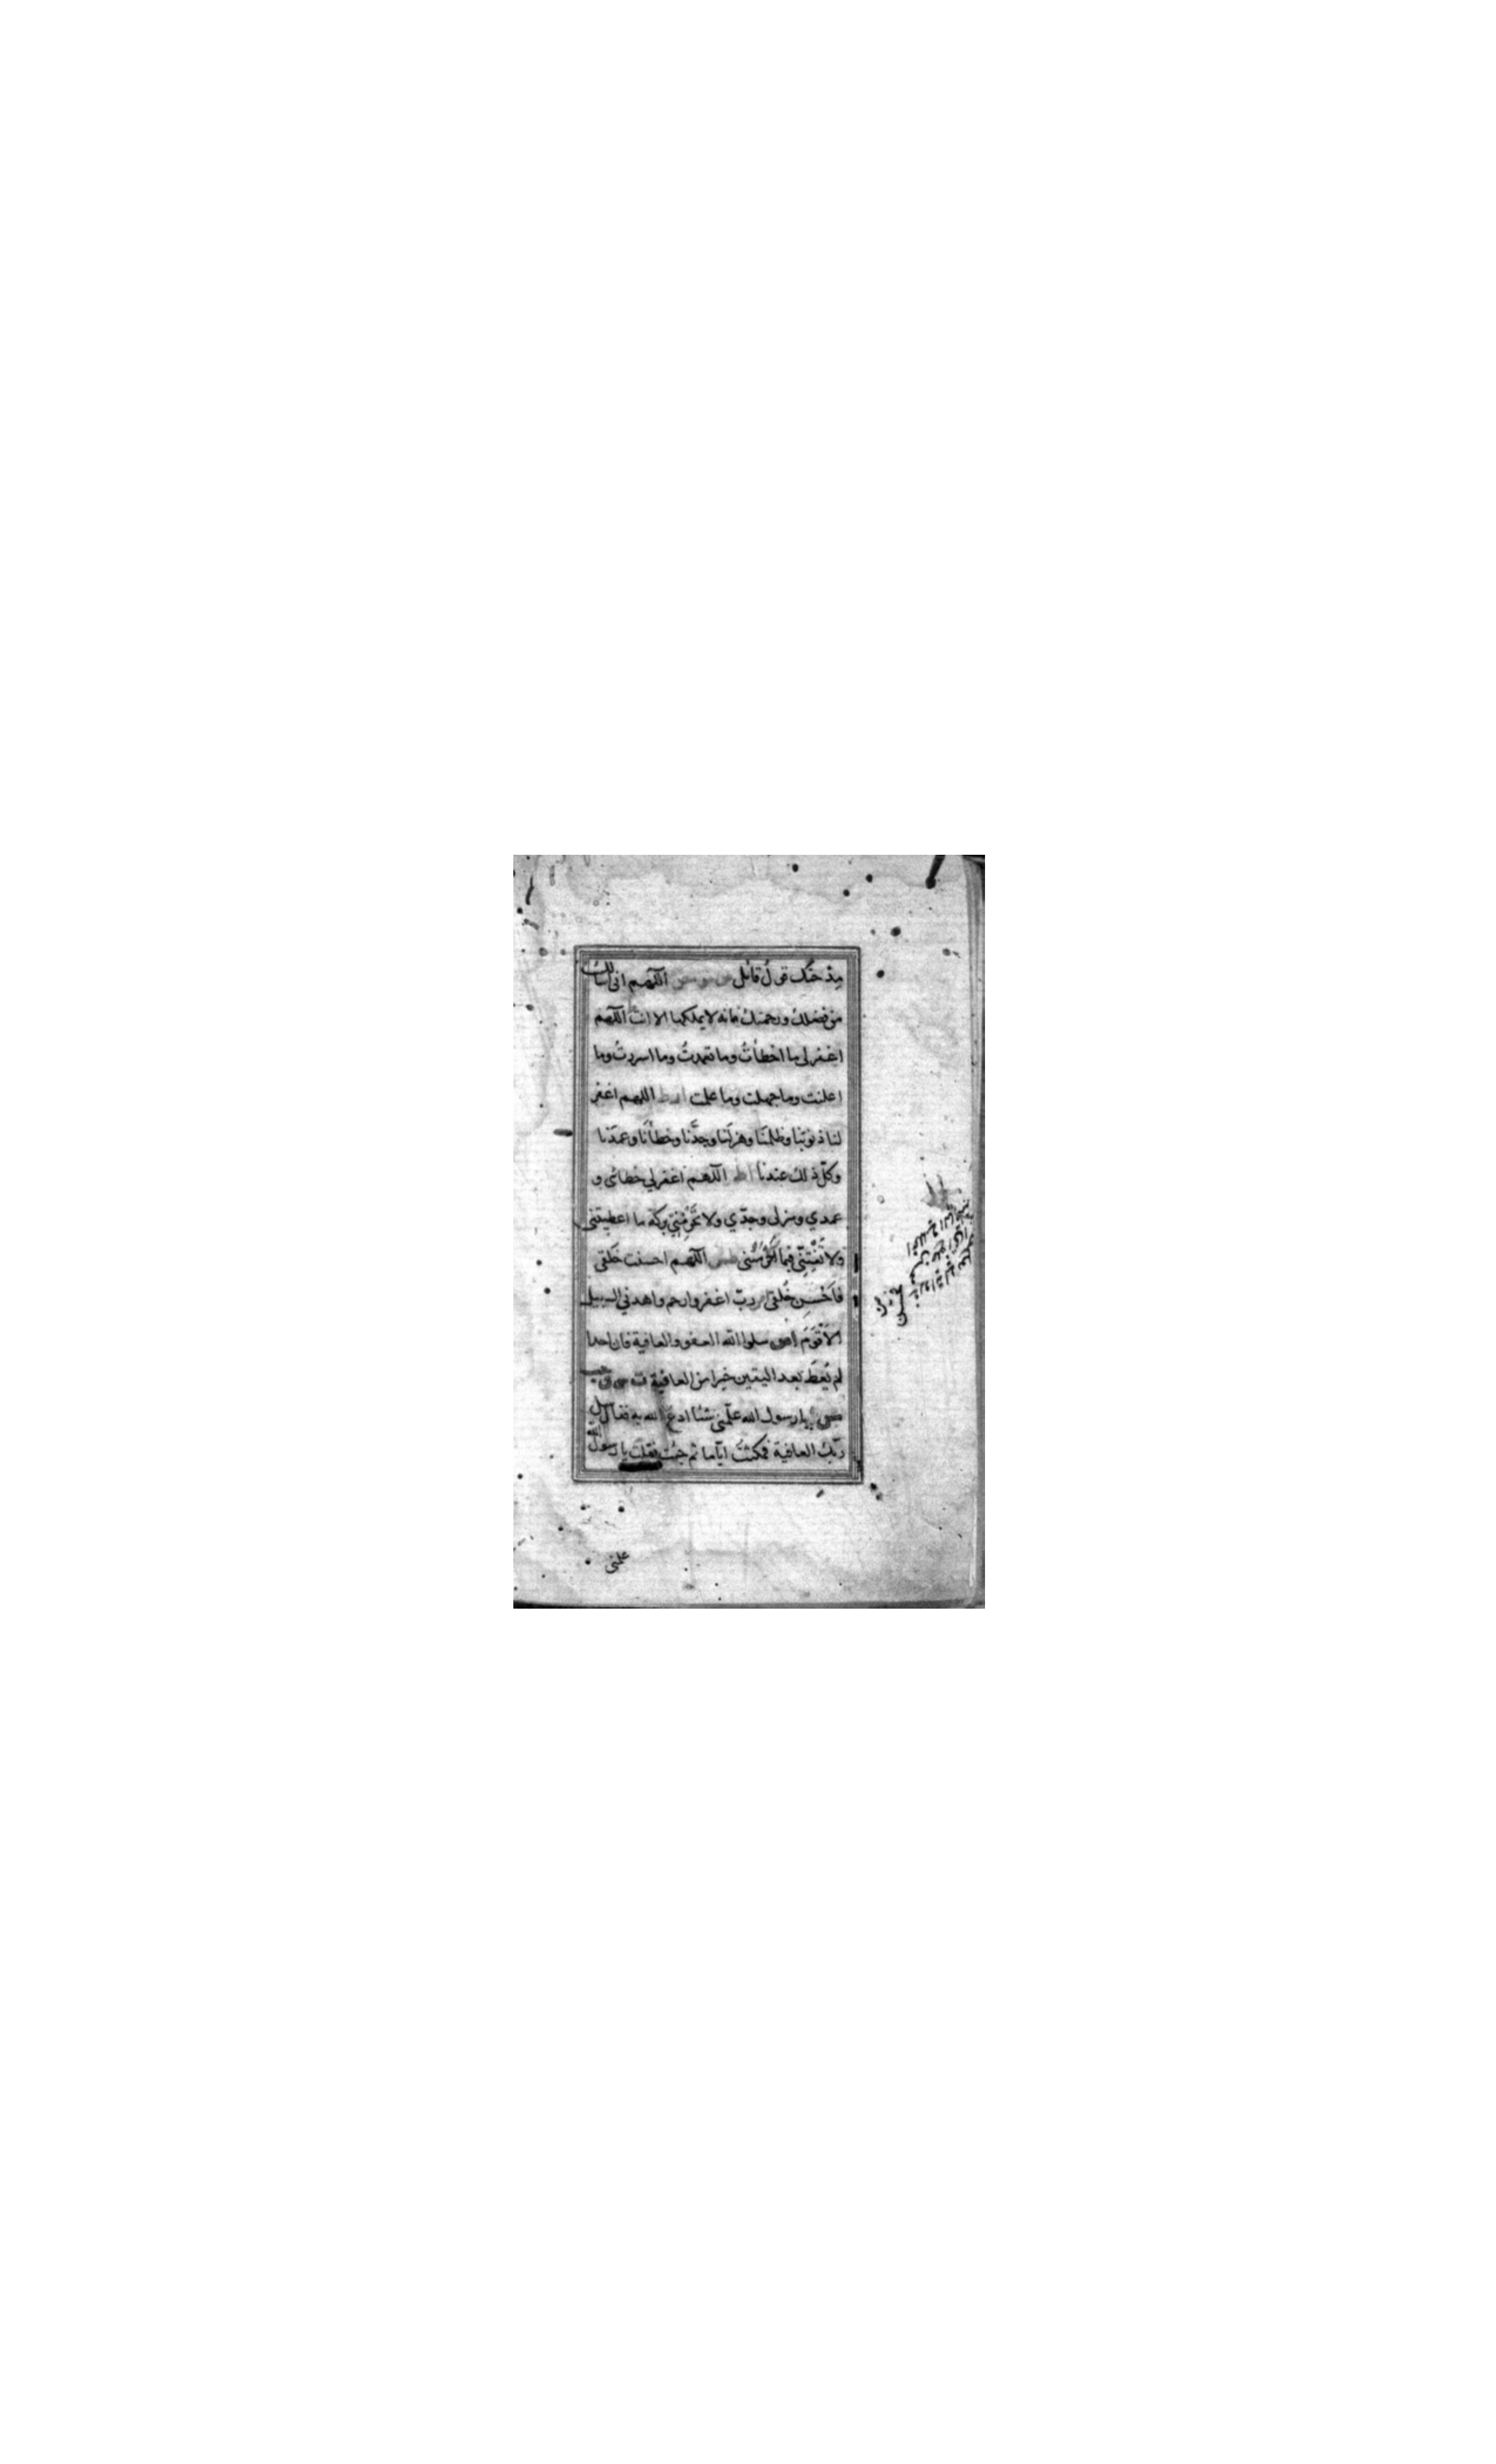 مدحتك قول قائل اللهم انى اسالك
من فضلك ورحمتك فانه لا يملكها الا انت اللهم
اغفر لى ما اخطأتُ وما تعمدتُ وما اسررتُ وما
اعلنت وما جهلت وما علمت اط اللهم اغفر
لنا ذنوبَنا وظلمَنا وهزلَنا وجِدَّنا وخطأَنا وعمدَنا
وكلّ ذلك عندنا اط اللهم اغفر لي خطائى و
عمدي وهزلى وجدّي ولا تَحْرِمْنِي بركة ما اعطيتنى
ولا تَفْتِنّي فيما اَحْرَمْتَنى طس اللهم احسنت خَلقى
فَاَحْسِن خُلقى اص ربّ اغفر وارحم واهدني السبيل
الاَقْوَمَ اص سلوا الله العفو والعافية فان احدا
لم يُعْطَ بعد اليقين خيرا من العافية ت س ق حب
مس يا رسول الله علّمنى شيئا ادعُ الله به فقال سل
ربّك العافية فمكثتُ ايّاما ثم جئت فقلت يا رسول الله
علمنى